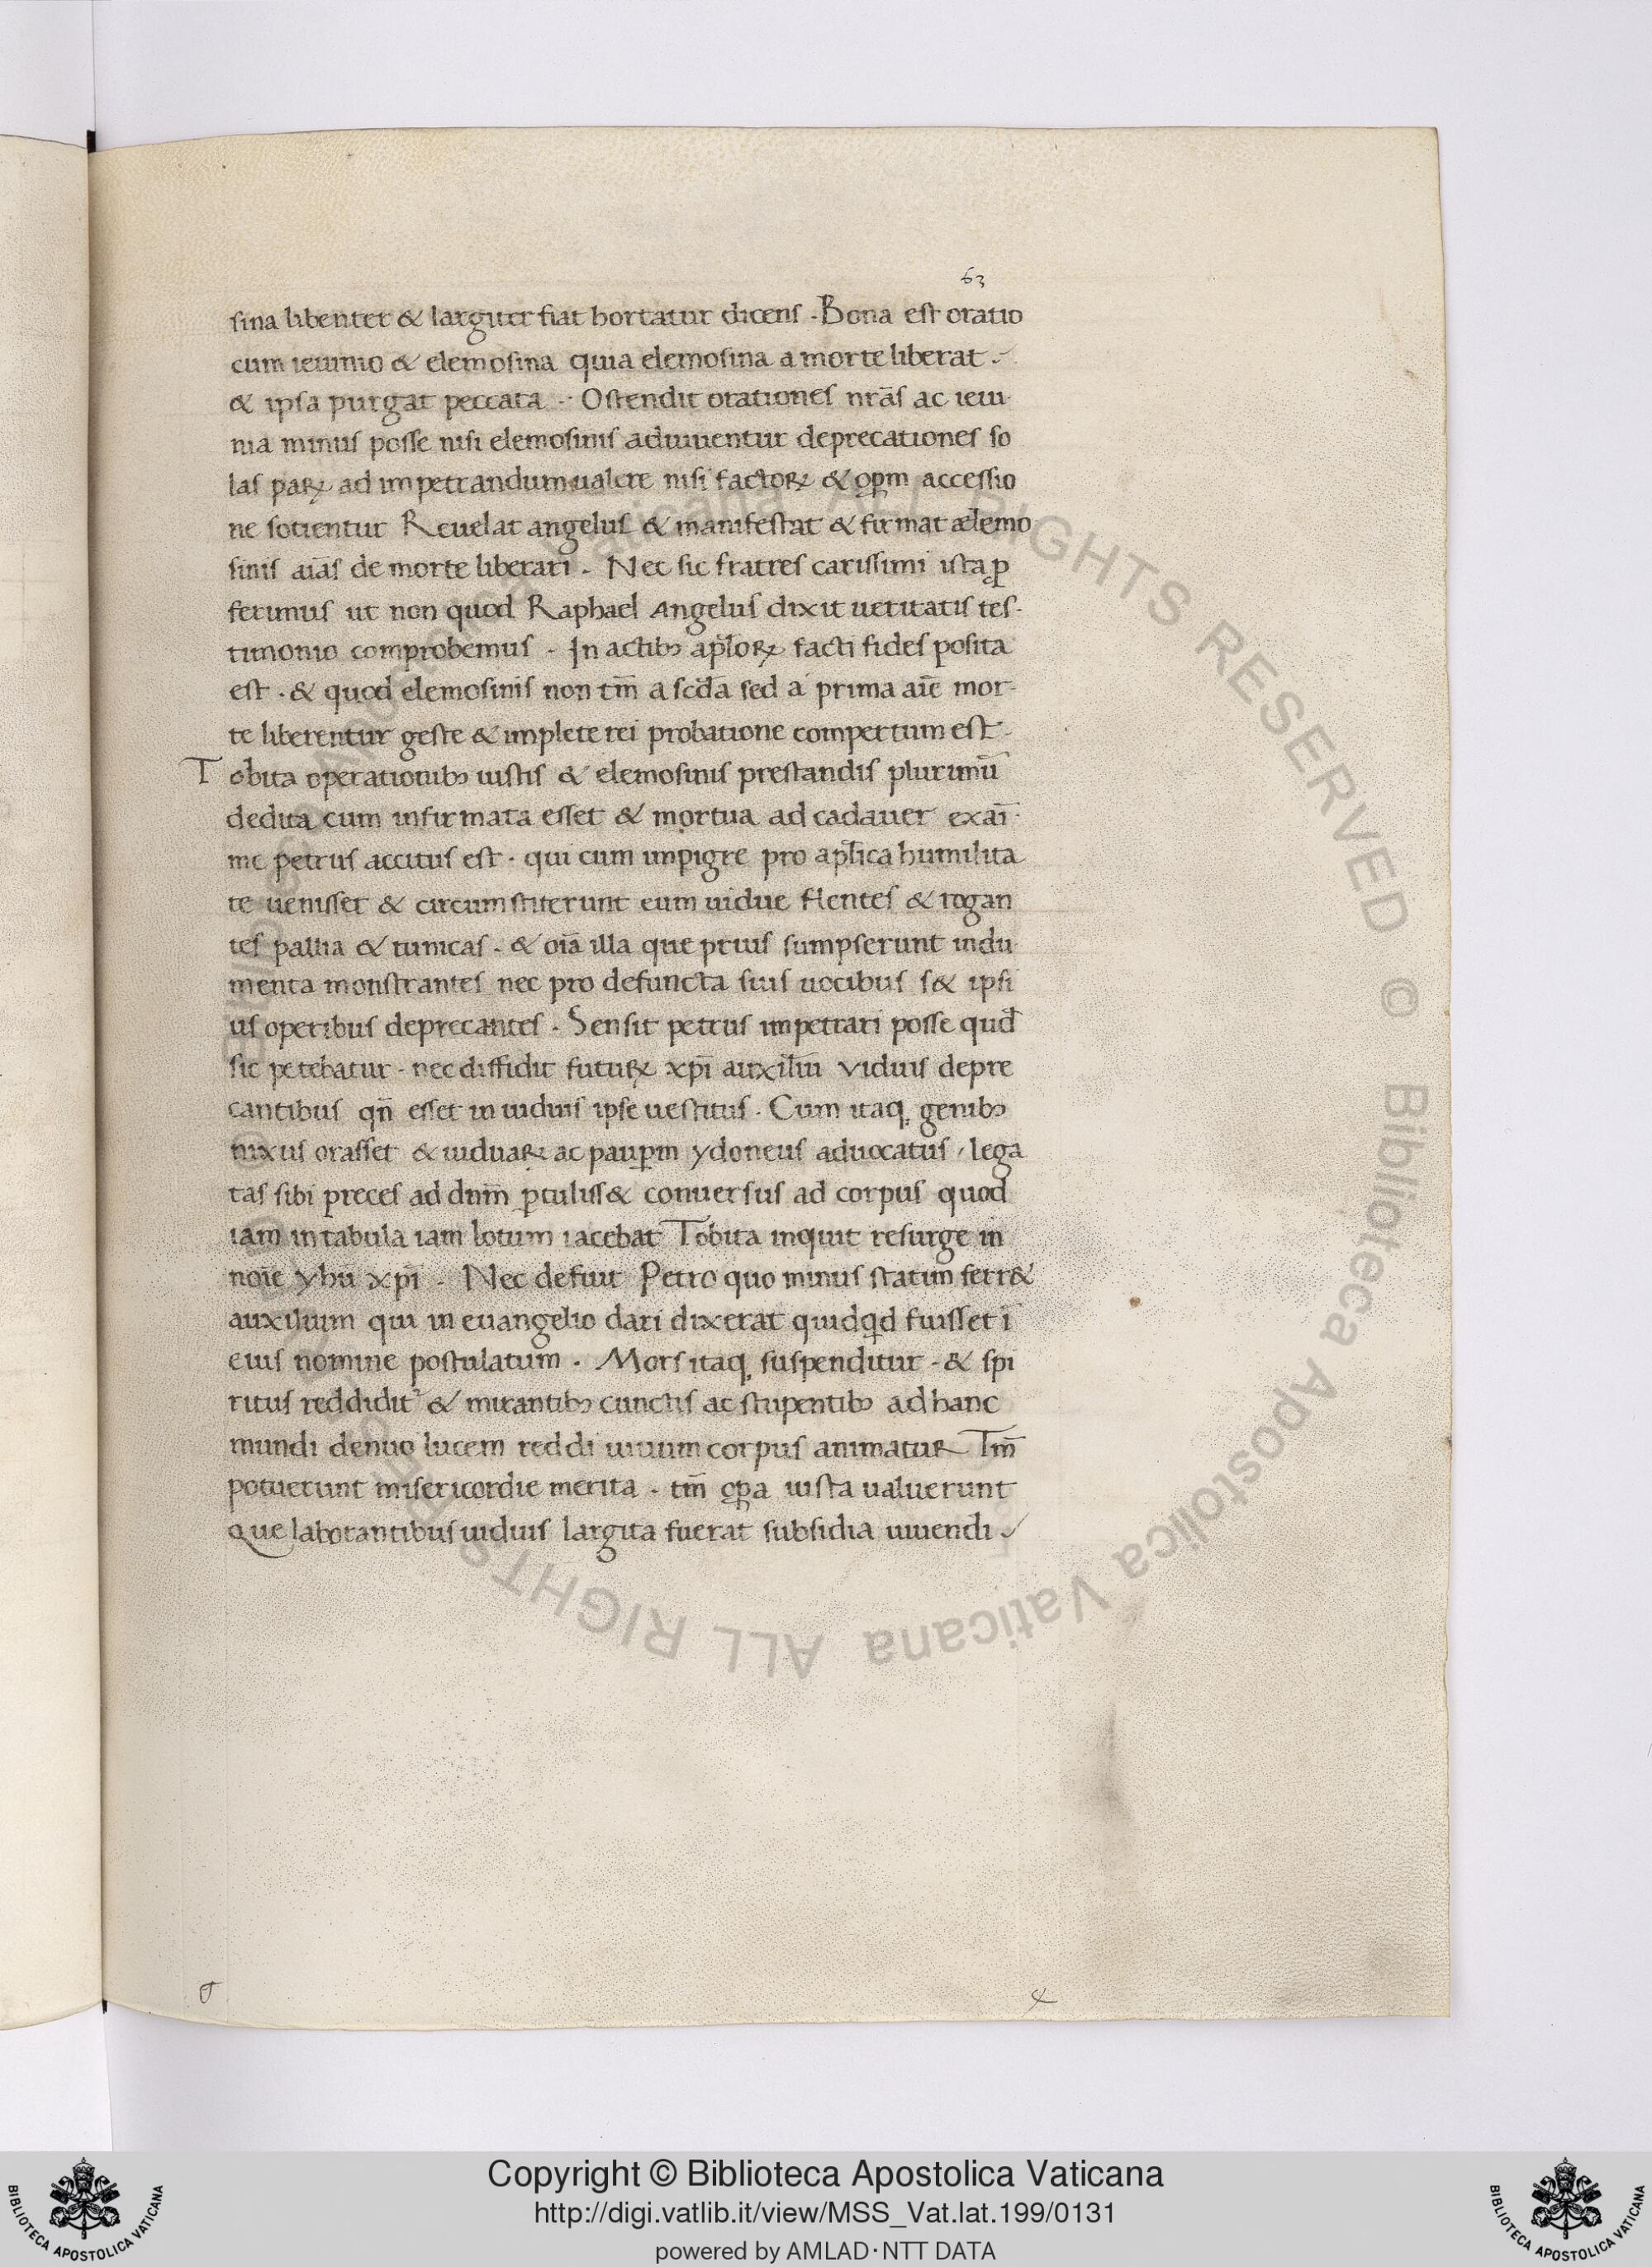 63
sina libenter & larguter fiat hortatur dicens . Bona est oratio
cum ieiunio & elemosina quia elemosina a morte liberat .
& ipsa purgat peccata . Ostendit orationes nr̄as ac ieiu-
nia minus posse nisi elemosinis adiuuentur deprecationes so
las parꝝ ad impetrandum ualere nisi factorꝝ & oꝑm accessio
ne sotientur Reuelat angelus & manifestat & firmat ælemo
sinis aīas de morte liberari . Nec sic fratres carissimi ista ꝓ
ferimus ut non quod Raphael Angelus dixit ueritatis tes-
timonio comprobemus . In actibꝰ apl̄orꝝ facti fides posita
est . & quod elemosinis non tm̄ a scd̄a sed a prima aīe mor-
te liberentur geste & implete rei probatione compertum est .
Tobita operationibꝰ iustis & elemosinis prestandis plurimū
dedita cum infirmata esset & mortua ad cadauer exaī-
me petrus accitus est . qui cum impigre pro apl̄ica humilita
te uenisset & circumstiterunt eum uidue flentes & rogan
tes pallia & tunicas . & oīa illa que prius sumpserunt indu
menta monstrantes nec pro defuncta suis uocibus s& ipsi
us operibus deprecantes . Sensit petrus impetrari posse qud̄
sic petebatur . nec diffidit futurꝝ xpī auxiliū viduis depre
cantibus qn̄ esset in uiduis ipse uestitus . Cum itaq; genibꝰ
nixus orasset & uiduarꝝ ac pauꝑm ydoneus aduocatus / lega
tas sibi preces ad dnm̄ ꝑtuliss& conuersus ad corpus quod
iam in tabula iam lotum iacebat Tobita inquit resurge in
noīe yhu xpī . Nec defuit Petro quo minus statim ferr&
auxilium qui in euangelio dari dixerat quidqͥd fuisset ī
eius nomine postulatum . Mors itaq; suspenditur . & spi
ritus reddidit᷑ & mirantibꝰ cunctis ac stupentibꝰ ad hanc
mundi denuo lucem reddi uiuum corpus animatur Tm̄
potuerunt misericordie merita . tm̄ oꝑa iusta ualuerunt
Que laborantibus uiduis largita fuerat subsidia uiuendi
© Biblioteca Apostolica Vaticana ALL RIGHTS RESERVED
Copyright © Biblioteca Apostolica Vaticana
http://digi.vatlib.it/view/MSS_Vat.lat.199/0131
powered by AMLAD·NTT DATA
BIBLIOTECA APOSTOLICA VATICANA
BIBLIOTECA APOSTOLICA VATICANA